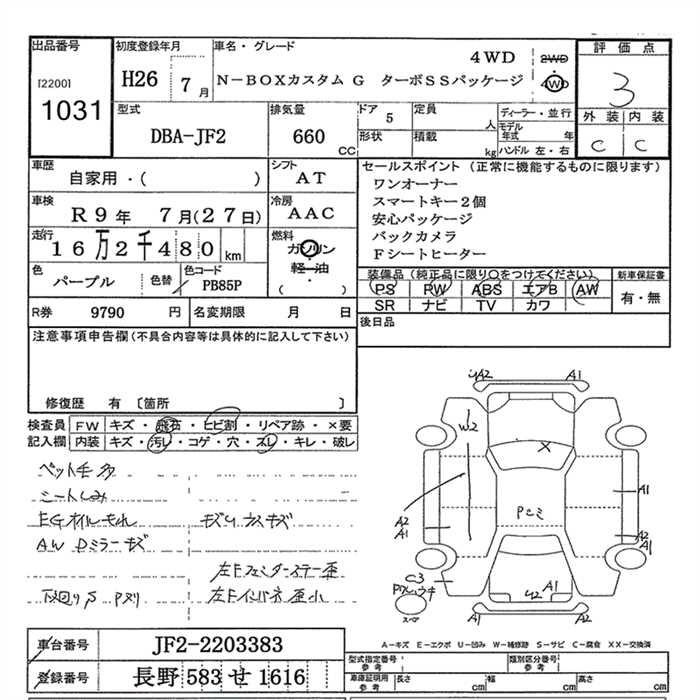 出品番号
[2200]
1031
初度登録年月
H26 7月
車名・グレード
4WD
N-BOXカスタム G ターボSSパッケージ
2WD
4WD
評価点
3
外装 内装
C C
型式
DBA-JF2
排気量
660 CC
ドア
5
形状
定員
人
積載
kg
ディーラー・並行
モデル年式 年
ハンドル 左・右
車歴
自家用・( )
シフト
AT
車検
R9年 7月(27日)
冷房
AAC
走行
16万2千480 km
燃料
ガソリン
軽油
( )
色
パープル
色替
色コード
PB85P
セールスポイント (正常に機能するものに限ります)
ワンオーナー
スマートキー2個
安心パッケージ
バックカメラ
Fシートヒーター
装備品(純正品に限り○をつけてください)
PS PW ABS エアB AW
SR ナビ TV カワ
新車保証書
有・無
R券 9790 円
名変期限 月 日
後日品
注意事項申告欄(不具合内容等は具体的に記入して下さい)
修復歴 有 [箇所 ]
検査員記入欄
FW キズ・飛石・ヒビ割・リペア跡・×要
内装 キズ・汚レ・コゲ・穴・スレ・キレ・破レ
ペット毛多
シートしみ
EGオイルもれ キズ
AW Dミラーキズ
下回りS
A2 A1
W2
X
A1
A2
A1
Pミ
A2
A1
C3
A1
スペア
A2 A1
A-キズ E-エクボ U-凹み W-補修跡 S-サビ C-腐食 XX-交換済
車台番号
JF2-2203383
登録番号
長野 583 せ 1616
型式指定番号 参考
類別区分番号 参考
車庫証明用 参考
長さ cm
幅 cm
高さ cm